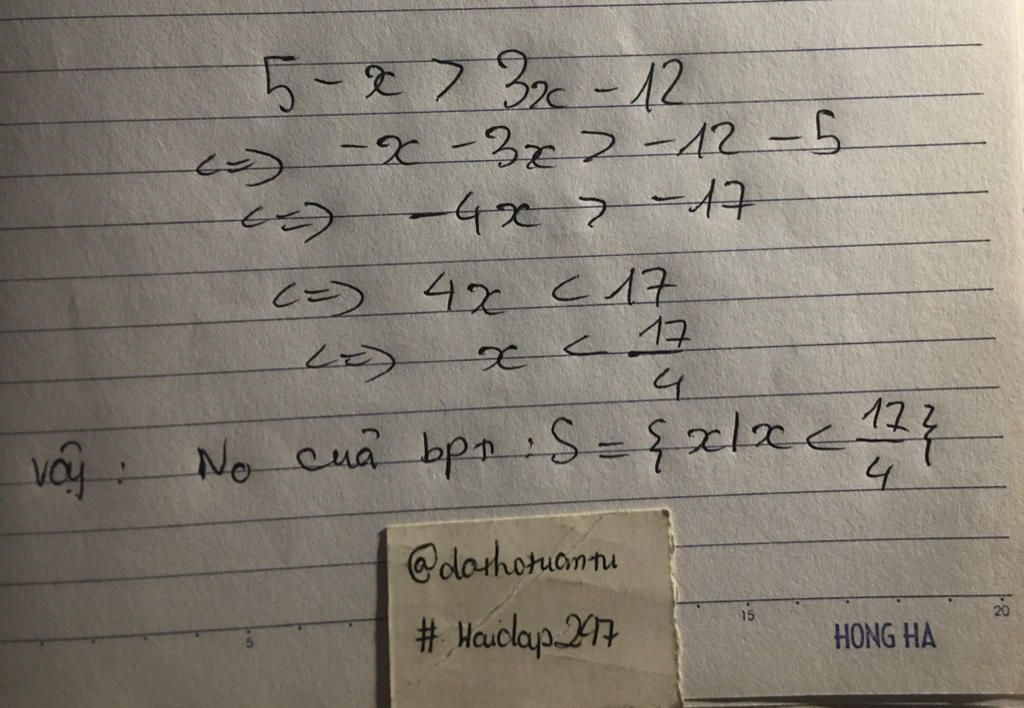 5 - x > 3x - 12
<=> -x - 3x > -12 - 5
<=> -4x > -17
<=> 4x < 17
<=> x < 17/4
vậy : No cuả bptr : S = { x | x < 17/4 }
@dathotuantu
# Hoidap247
5 15 20
HONG HA